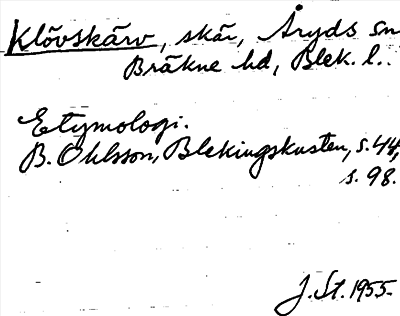 Klövskärv, skär, Åryds sn
Bräkne hd, Blek. l..
Etymologi.
B. Ohlsson, Blekingskusten, s. 44,
s. 98.
J. St. 1955.